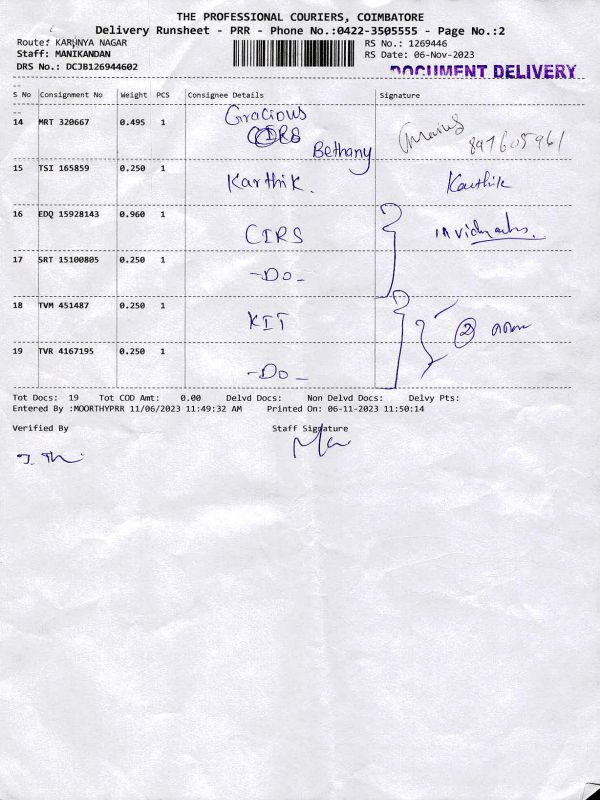 THE PROFESSIONAL COURIERS, COIMBATORE
Delivery Runsheet - PRR - Phone No.:0422-3505555 - Page No.:2
Route: KARUNYA NAGAR RS No.: 1269446
Staff: MANIKANDAN RS Date: 06-Nov-2023
DRS No.: DCJB126944602 DOCUMENT DELIVERY
S No Consignment No Weight PCS Consignee Details Signature
14 MRT 320667 0.495 1 Gracious
CIRS
Bethany
15 TSI 165859 0.250 1 Karthik. Karthik
16 EDQ 15928143 0.960 1 CIRS
17 SRT 15100805 0.250 1 -Do-
18 TVM 451487 0.250 1 KIT 2
19 TVR 4167195 0.250 1 -Do-
Tot Docs: 19 Tot COD Amt: 0.00 Delvd Docs: Non Delvd Docs: Delvy Pts:
Entered By :MOORTHYPRR 11/06/2023 11:49:32 AM Printed On: 06-11-2023 11:50:14
Verified By Staff Signature